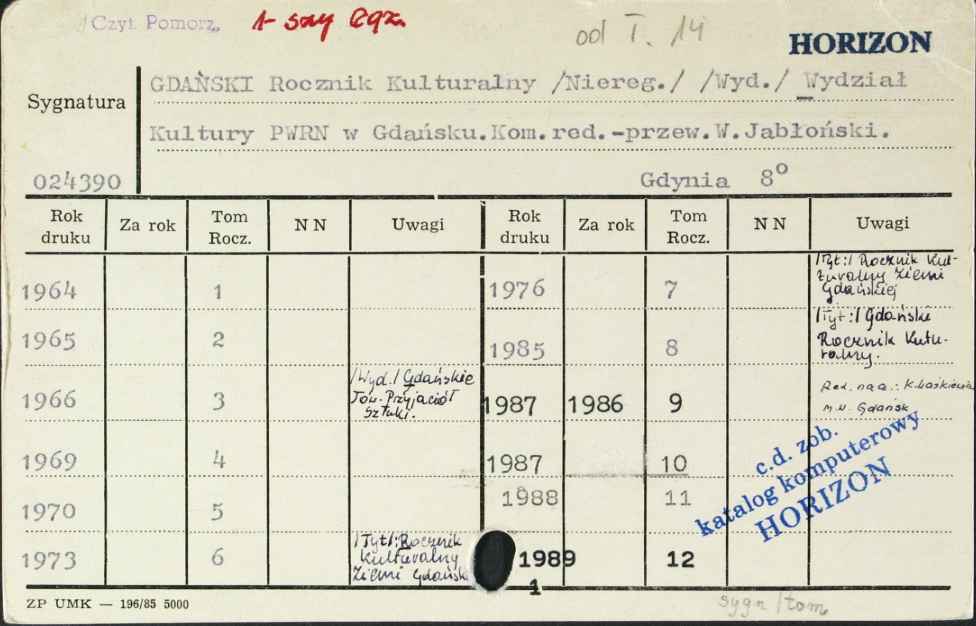 /Czyt. Pomorz.
1-szy Egz.
od T. 14
HORIZON
Sygnatura
GDAŃSKI Rocznik Kulturalny /Niereg./ /Wyd./ Wydział
Kultury PWRN w Gdańsku.Kom.red.-przew.W.Jabłoński.
024390
Gdynia 8°
Rok druku Za rok Tom Rocz. NN Uwagi Rok druku Za rok Tom Rocz. NN Uwagi
1964 1
1976 7 /Tyt:/ Rocznik Kul-
turalny Ziemi
Gdańskiej
1965 2
1985 8 /Tyt:/ Gdański
Rocznik Kultu-
ralny.
1966 3 /Wyd./ Gdańskie
Tow. Przyjaciół
Sztuki.
1987 1986 9 Red. nacz.:
m.w. Gdańsk
1969 4
1987 10
1970 5
1988 11
1973 6 /Tyt/: Rocznik
Kulturalny
Ziemi Gdańsk
1989 12
1
c.d. zob.
katalog komputerowy
HORIZON
ZP UMK — 196/85 5000
sygn /tom